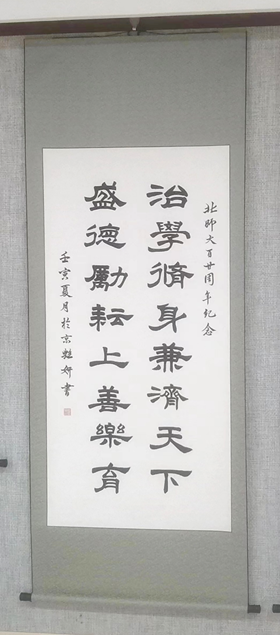 北師大百廿周年紀念
治學脩身兼濟天下
盛德勵耘上善樂育
壬寅夏月於京 妍書